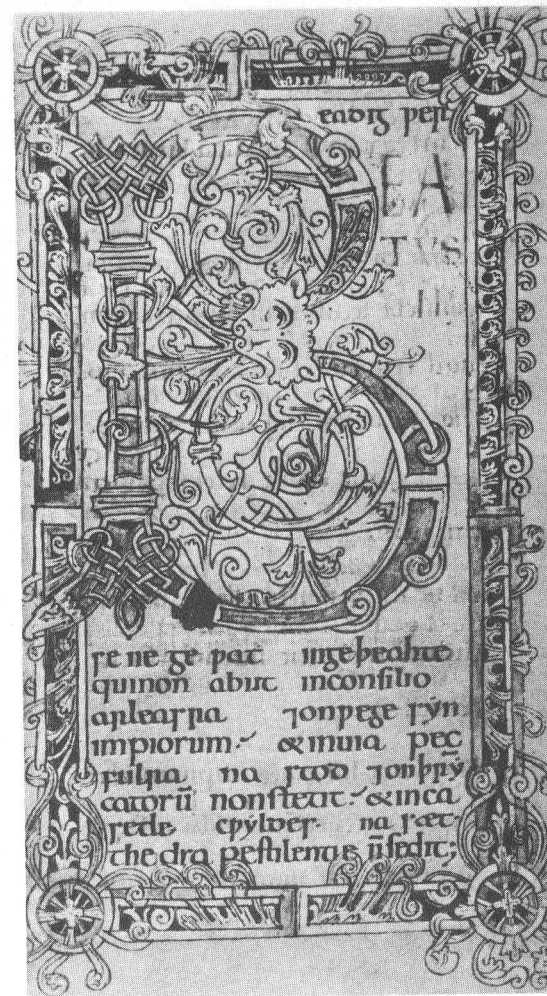 eadig ƿer
B
EA
TVS
se ne ge ƿat ingeþeahte
quinon abiit inconsilio
arleasra ⁊onƿege syn
impiorum. &inuia pec
fulra na stod ⁊onþrȳ
catorū nonstetit. &inca
setle cƿyldes na sæt
thedra pestilentie n̄sedit;